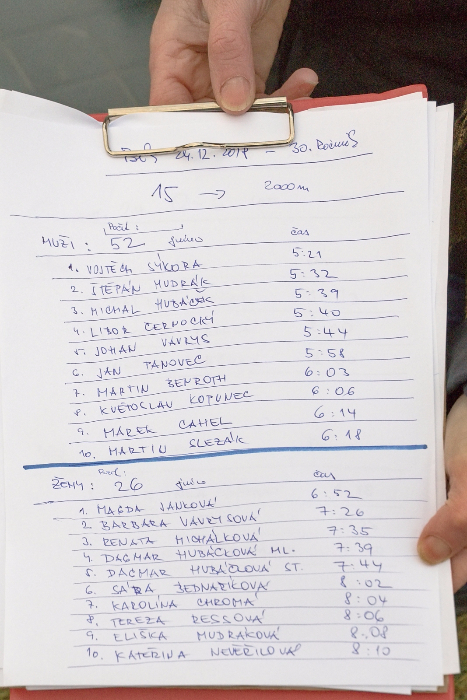 24.12.2019 - 30. ROČNÍK
15 → 2000m
Počet:
MUŽI: 52 jméno čas
1. VOJTĚCH SÝKORA 5:21
2. ŠTĚPÁN MUDRÁK 5:32
3. MICHAL HUBÁČEK 5:39
4. LIBOR ČERNOCKÝ 5:40
5. JOHAN VAVRYS 5:44
6. JAN TANOVEC 5:58
7. MARTIN BENROTH 6:03
8. KVĚTOSLAV KOPUNEC 6:06
9. MAREK CAHEL 6:14
10. MARTIN SLEZÁK 6:18
ŽENY: 26 jméno čas
1. MAGDA JANKOVÁ 6:52
2. BARBARA VAVRYSOVÁ 7:26
3. RENATA MICHÁLKOVÁ 7:35
4. DAGMAR HUBÁČKOVÁ ML. 7:39
5. DAGMAR HUBÁČKOVÁ ST. 7:44
6. SÁRA JEDNAŘÍKOVÁ 8:02
7. KAROLÍNA CHROMÁ 8:04
8. TEREZA RESSOVÁ 8:06
9. ELIŠKA MUDRÁKOVÁ 8:08
10. KATEŘINA NEVĚŘILOVÁ 8:10